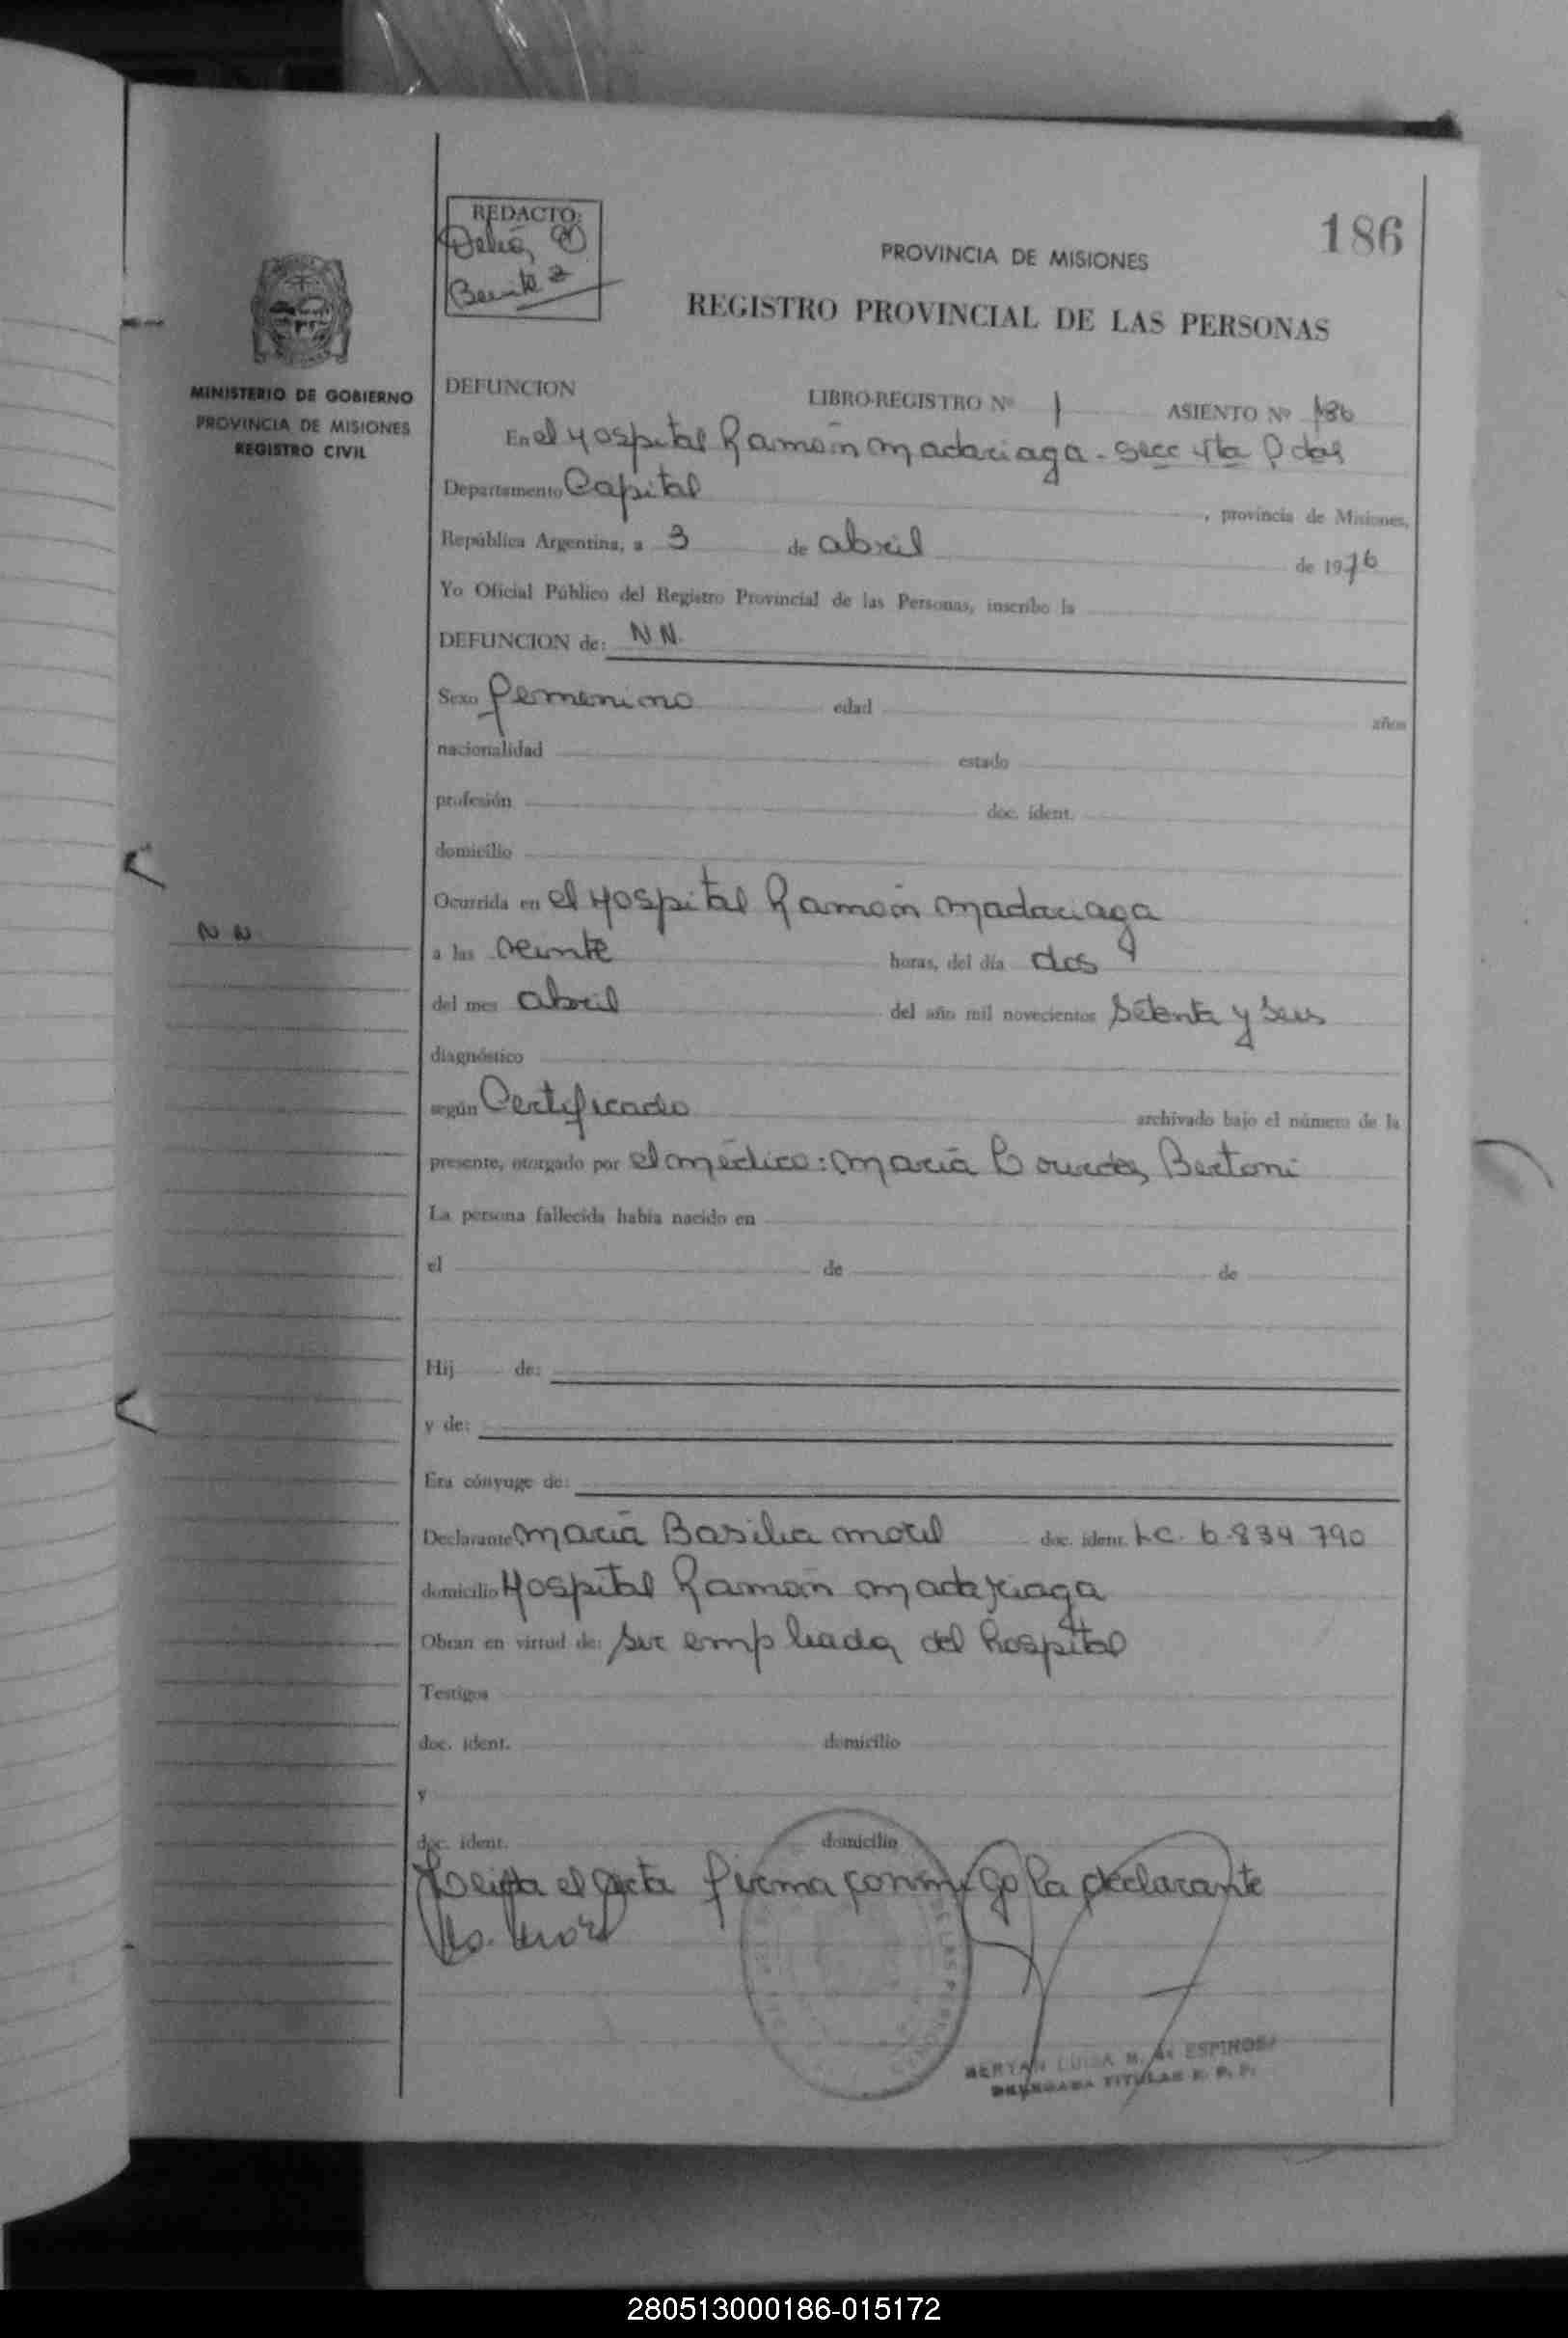 186
REDACTO:
Benitez
PROVINCIA DE MISIONES
REGISTRO PROVINCIAL DE LAS PERSONAS
MINISTERIO DE GOBIERNO
PROVINCIA DE MISIONES
REGISTRO CIVIL
DEFUNCION LIBRO-REGISTRO Nº 1 ASIENTO Nº 186
En el Hospital Ramón Madariaga - Secc 4ta Pdas
Departamento Capital, provincia de Misiones,
República Argentina, a 3 de abril de 1976
Yo Oficial Público del Registro Provincial de las Personas, inscribo la
DEFUNCION de: NN.
Sexo femenino edad años
nacionalidad estado
profesión doc. ident.
domicilio
Ocurrida en el Hospital Ramón Madariaga
N N
a las veinte horas, del día dos
del mes abril del año mil novecientos setenta y seis
diagnóstico
según Certificado archivado bajo el número de la
presente, otorgado por el médico: María Lourdes Bertoni
La persona fallecida había nacido en
el de de
Hij de:
y de:
Era cónyuge de:
Declarante María Basilia Motel doc. ident. LC. 6.834.790
domicilio Hospital Ramón Madariaga
Obran en virtud de: ser empleada del hospital
Testigos
doc. ident. domicilio
y
doc. ident. domicilio
Leida el acta firma conmigo la declarante
LUISA M. de ESPINOSA
DELEGADA TITULAR R. P. P.
280513000186-015172